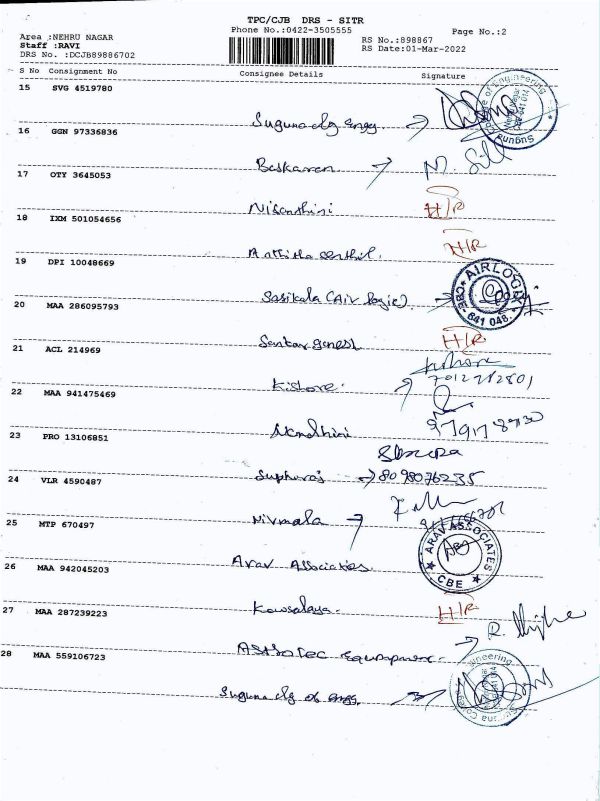 TPC/CJB DRS - SITR
Phone No.:0422-3505555 Page No.:2
Area :NEHRU NAGAR
Staff :RAVI
DRS No. :DCJB89886702
RS No.:898867
RS Date:01-Mar-2022
S No Consignment No Consignee Details Signature
15 SVG 4519780
Suguna clg engg
Suguna College of Engineering
16 GGN 97336836
Baskaran
17 OTY 3645053
Nisanthini H/R
18 IXM 501054656
H/R
19 DPI 10048669
Sasikala (Air logic)
AIRLOGIC
CBE - 641 048.
20 MAA 286095793
Sankar ganesh H/R
21 ACL 214969
Kishore
22 MAA 941475469
Nandhini
23 PRO 13106851
8098076235
24 VLR 4590487
Nirmala
25 MTP 670497
Arav Associates
ARAV ASSOCIATES
CBE
26 MAA 942045203
Kowsalaya H/R
27 MAA 287239223
28 MAA 559106723
Suguna clg of engg.